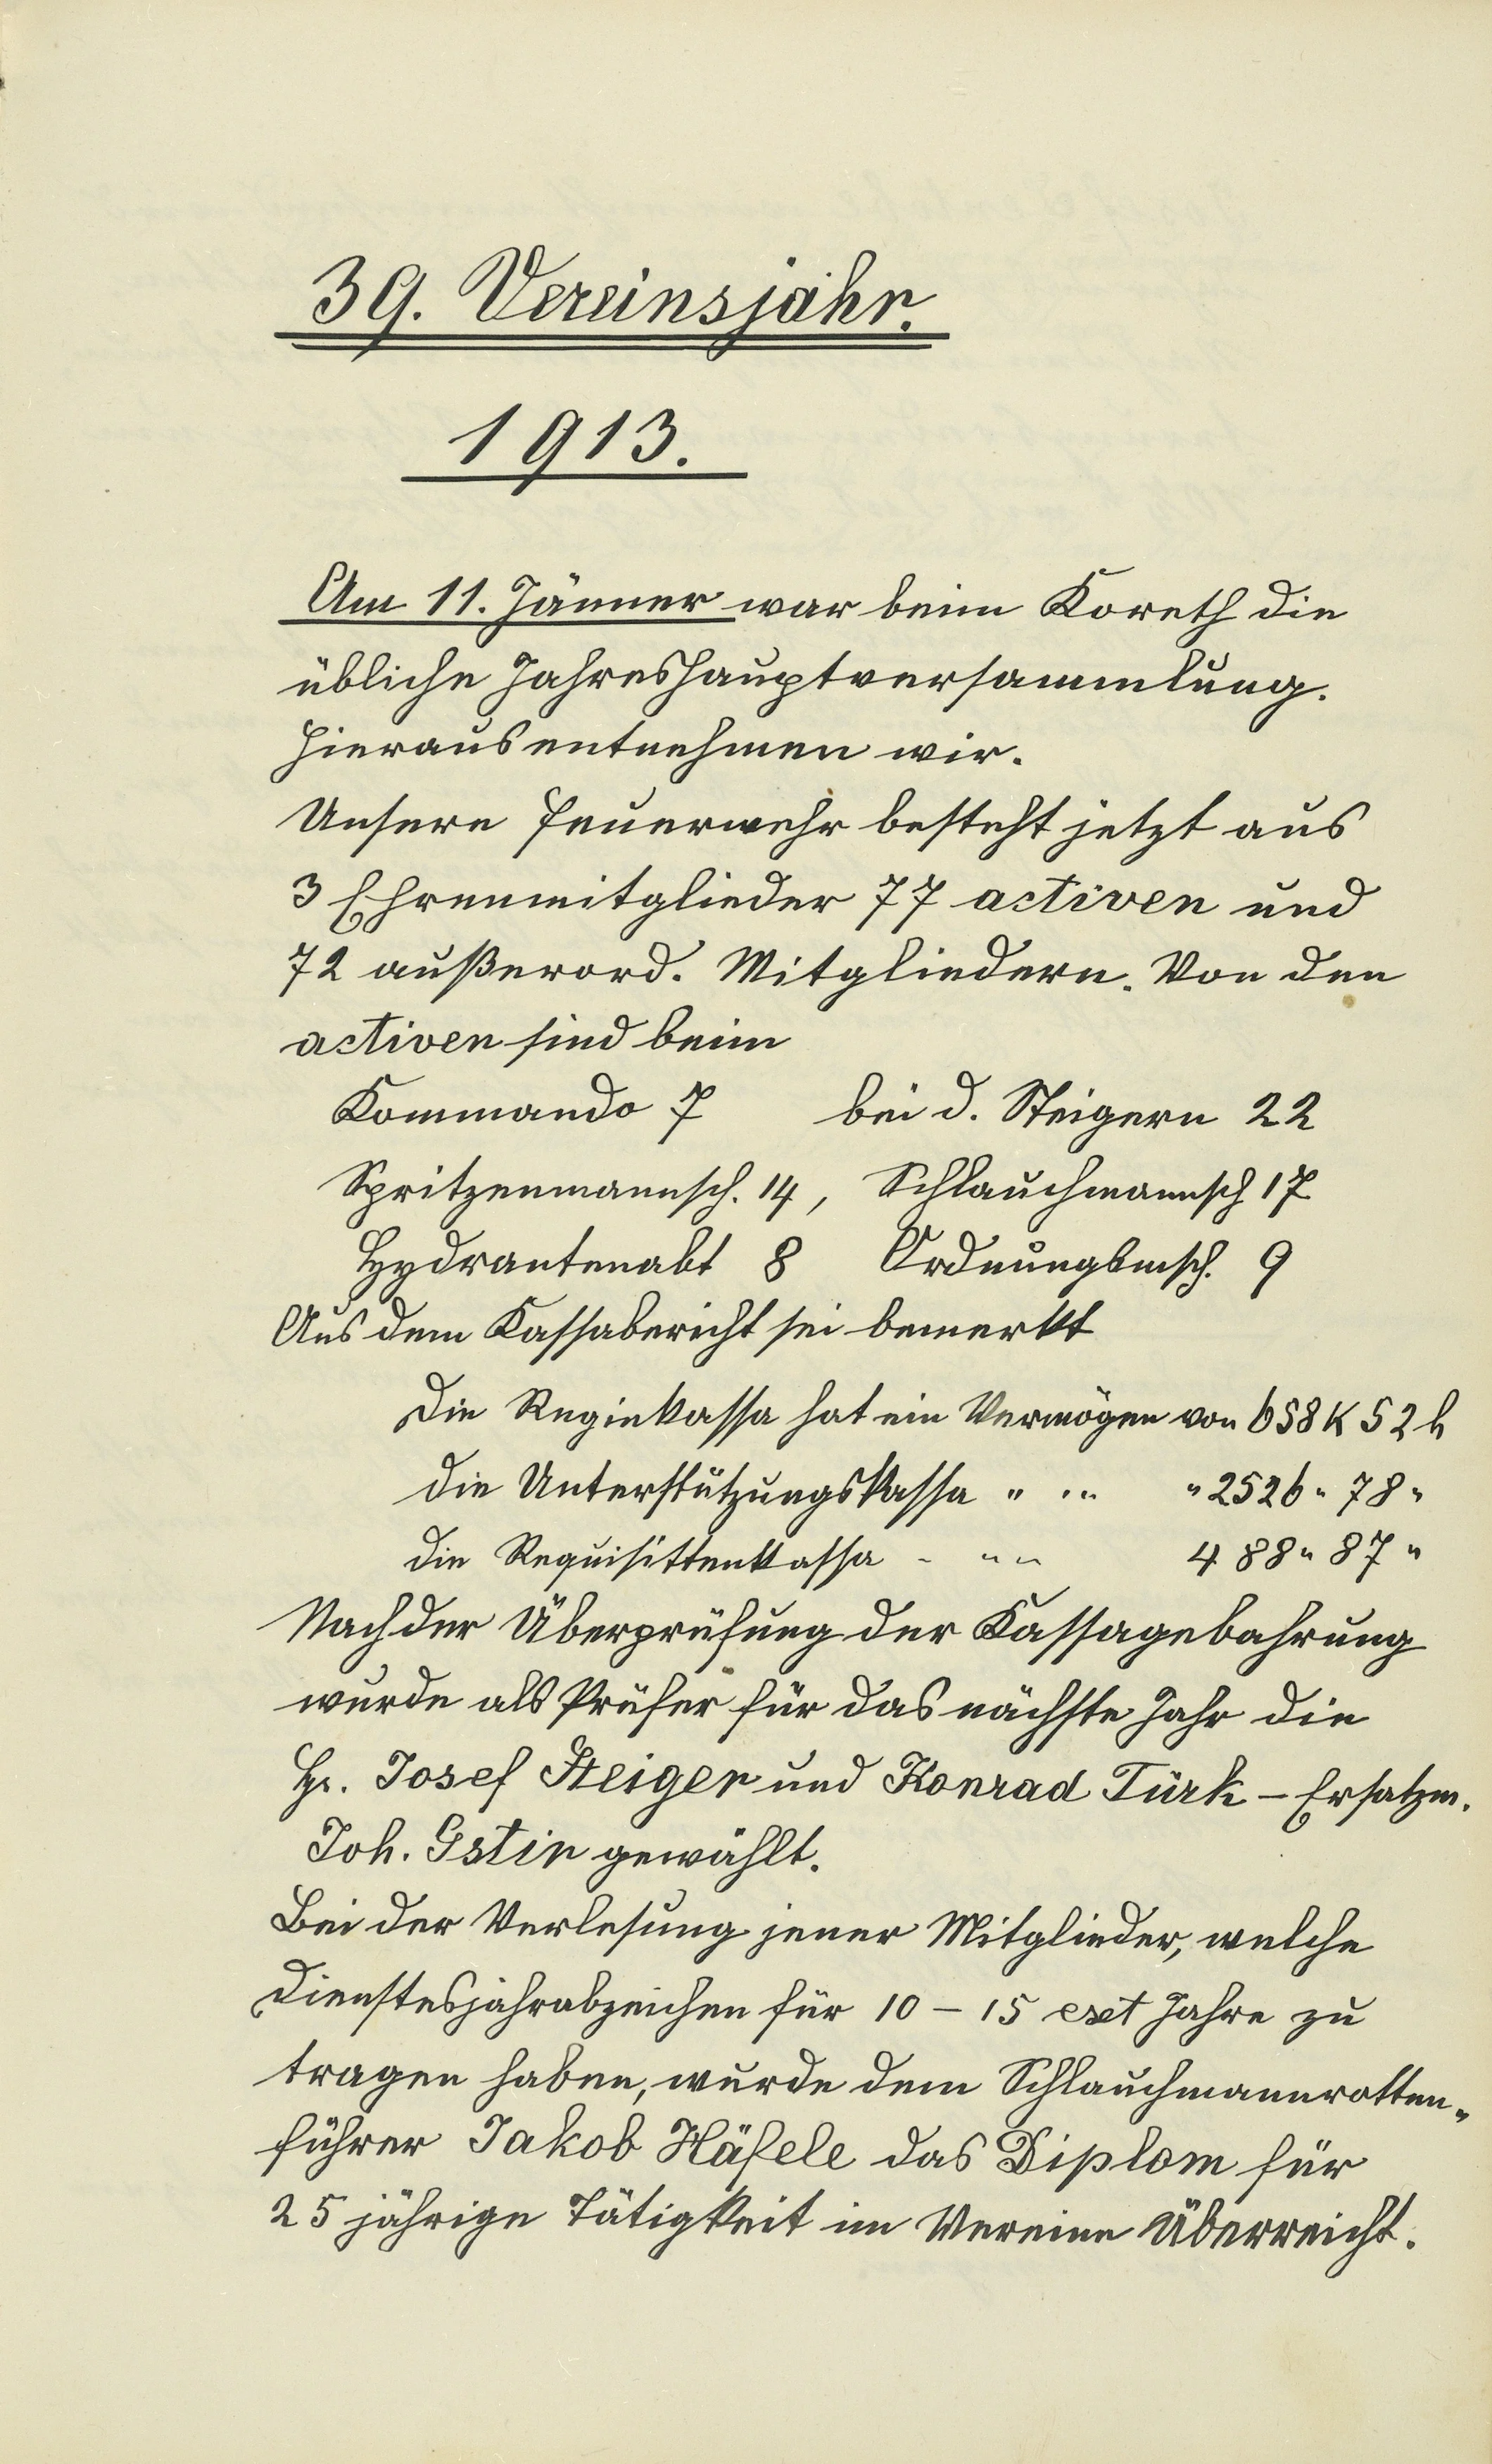 39. Vereinsjahr.
1913.
Am 11. Jänner war beim Koreth die
übliche Jahreshauptversammlung.
Hieraus entnehmen wir.
Unsere Feuerwehr besteht jetzt aus
3 Ehrenmitglieder 77 activen und
72 außerord. Mitgliedern. Von den
activen sind beim
Kommando 7 bei d. Steigern 22
Spritzenmannsch. 14, Schlauchmannsch 17
Hydrantenabt 8 Ordnungsmsch. 9
Aus dem Kassabericht sei bemerkt
Die Regiekassa hat ein Vermögen von 658 K 52 h
die Unterstützungskassa " " " " 2526 " 78 "
die Requisittenkassa " " " 488 " 87 "
Nach der Überprüfung der Kassagebahrung
wurde als Prüfer für das nächste Jahr die
Hr. Josef Steiger und Konrad Türk - Ersatzm.
Joh. Gstir gewählt.
Bei der Verlesung jener Mitglieder, welche
Dienstesjahrabzeichen für 10 - 15 ext Jahre zu
tragen haben, wurde dem Schlauchmannrotten-
führer Jakob Häfele das Diplom für
25 jährige Tätigkeit im Vereine Überreicht.